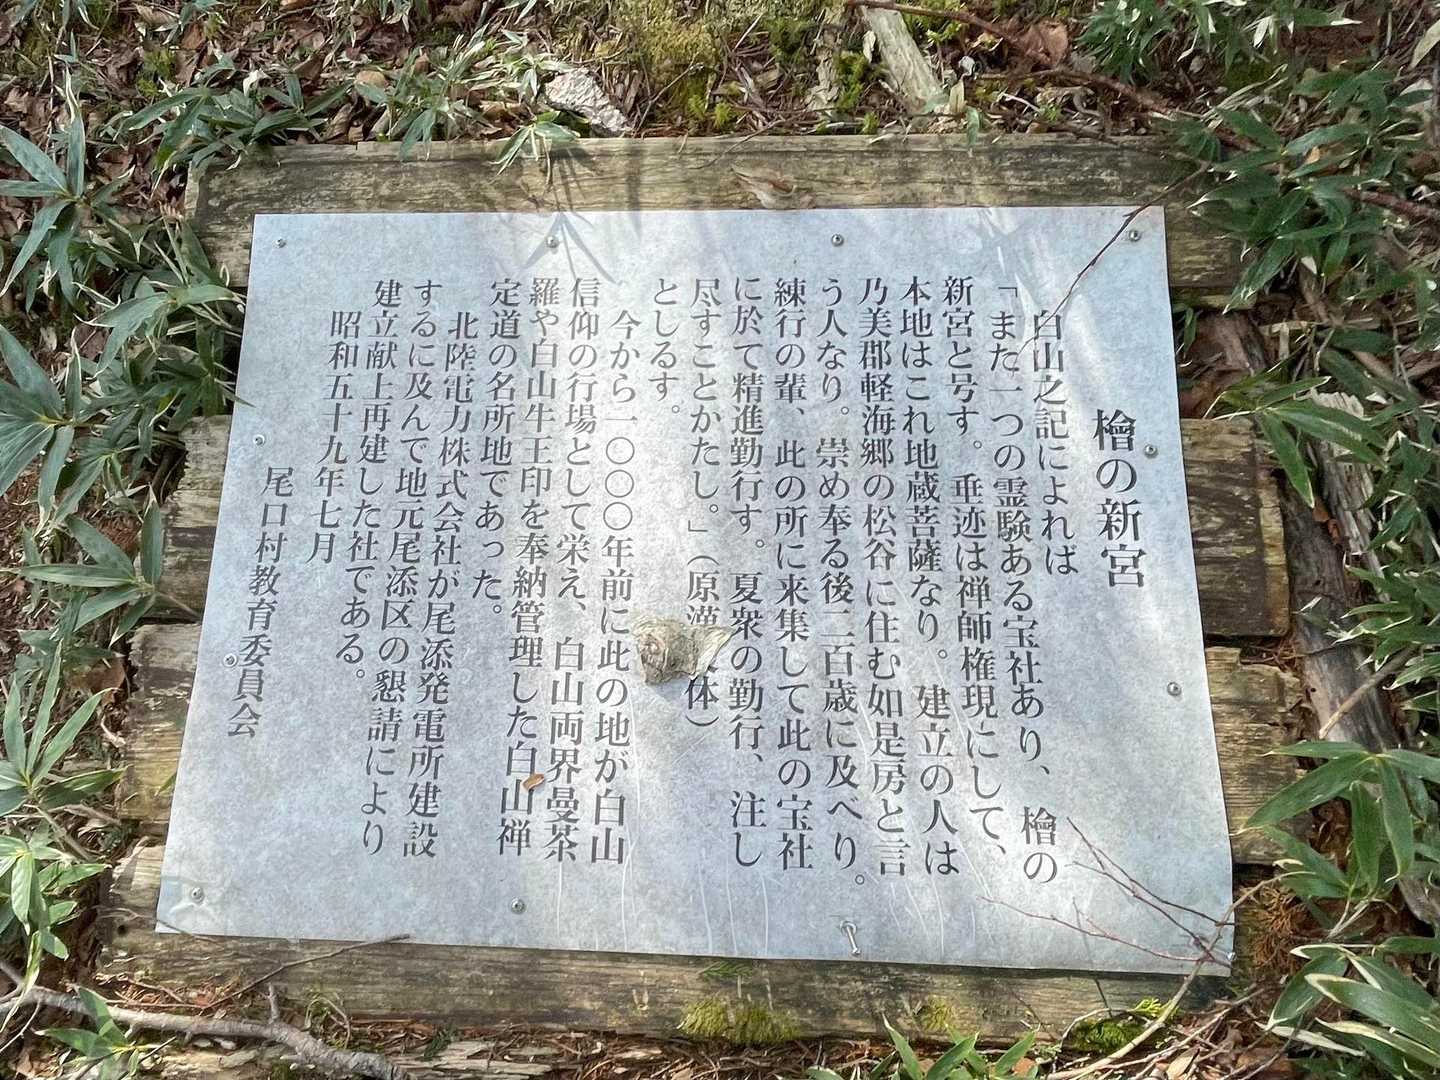 檜の新宮
白山之記によれば
「また一つの霊験ある宝社あり、檜の
新宮と号す。垂迹は禅師権現にして、
本地はこれ地蔵菩薩なり。建立の人は
乃美郡軽海郷の松谷に住む如是房と言
う人なり。崇め奉る後二百歳に及べり。
練行の輩、此の所に来集して此の宝社
に於て精進勤行す。夏衆の勤行、注し
尽すことかたし。」（原漢 体）
としるす。
今から一〇〇〇年前に此の地が白山
信仰の行場として栄え、白山両界曼荼
羅や白山牛王印を奉納管理した白山禅
定道の名所地であった。
北陸電力株式会社が尾添発電所建設
するに及んで地元尾添区の懇請により
建立献上再建した社である。
昭和五十九年七月
尾口村教育委員会